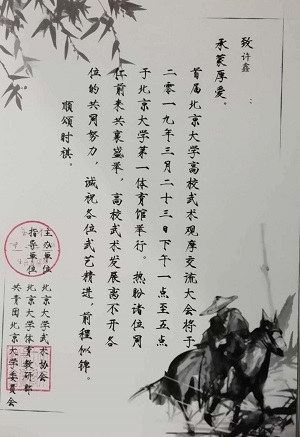 致 许鑫
承蒙厚爱。
首届北京大学高校武术观摩交流大会将于
二零一九年三月二十三日下午一点至五点
于北京大学第一体育馆举行。热盼诸位同
仁前来共襄盛举，高校武术发展离不开各
位的共同努力，诚祝各位武艺精进，前程似锦。
顺颂时祺。
主办单位 北京大学武术协会
指导单位 北京大学体育教研部
共青团北京大学委员会